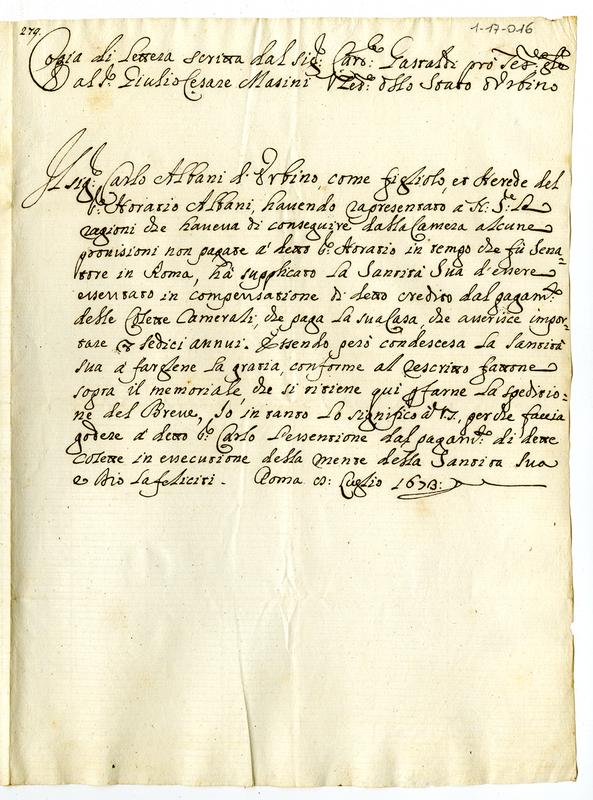 279.
1-17-016
Copia di Lettera scritta dal sig.r Card: Gastaldi pro Tes: Gle
al S. Giulio Cesare Masini Tes: dello Stato d'Urbino
Il sig.r Carlo Albani d'Urbino, come figliolo, et Herede del
Horatio Albani, havendo rapresentato à N: S.re Le
ragioni che haveva di conseguire dalla Camera alcune
provisioni non pagate à detto Horatio in tempo che fù Sena=
tore in Roma, hà supplicato La Santità Sua d'essere
essentato in compensatione di detto credito dal pagam.to
delle Colette Camerali, che paga La sua Casa, che asserisce impor=
tare sedici annui. Essendo però condescesa La Santità
sua à fargliene La gratia, conforme al rescritto fattone
sopra il memoriale, che si ritiene qui p farne La speditio=
ne del Breve, Io in tanto Lo significo à V.S. perche faccia
godere à detto Carlo L'essentione dal pagam.to di dette
Colette in essecutione della mente della Santità Sua
e Dio La feliciti. Roma Luglio 1673: